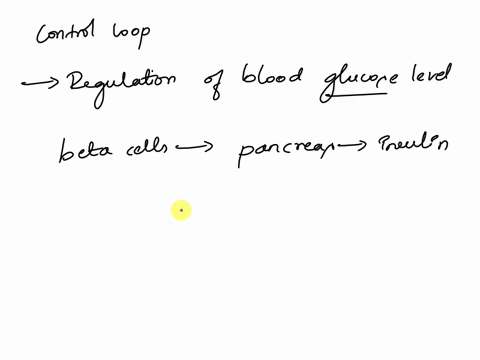 Control loop
→ Regulation of blood glucose level
beta cells → pancreas → insulin